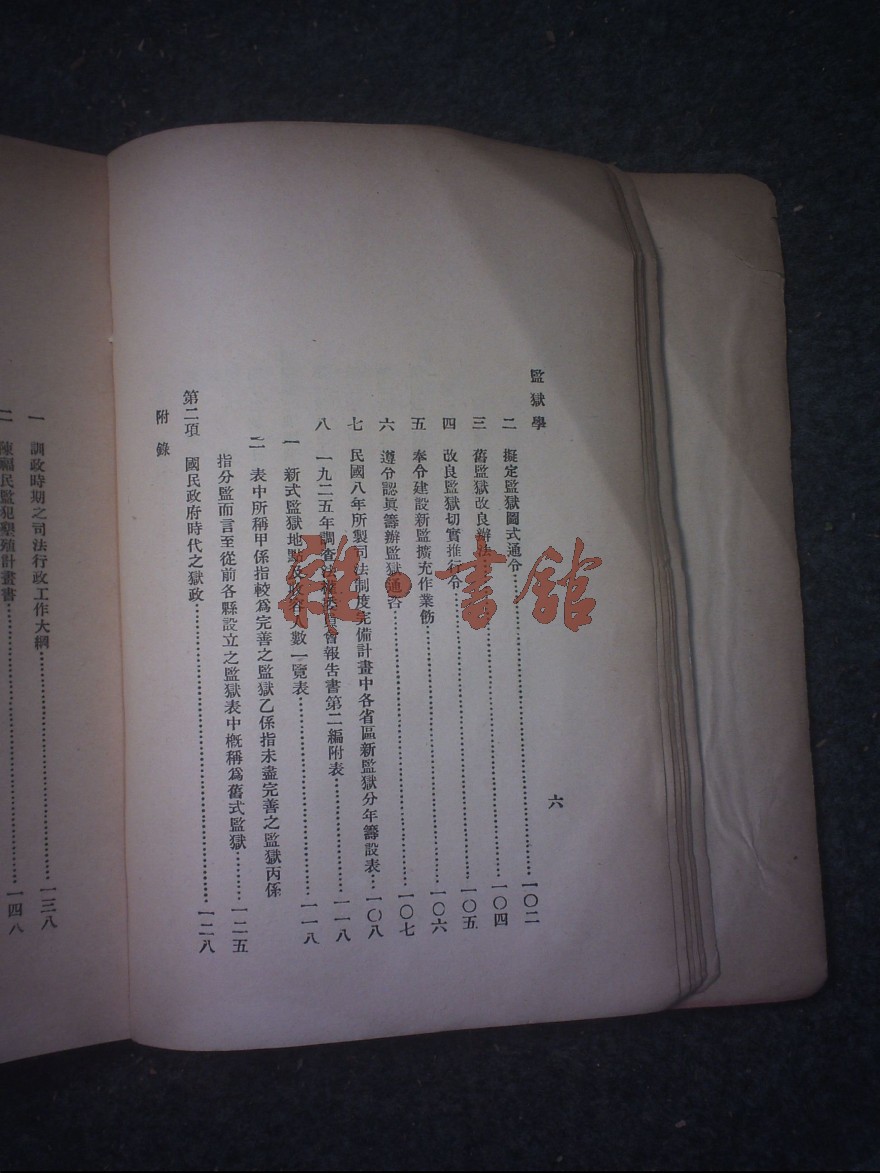 監獄學
六
二 擬定監獄圖式通令 一〇二
三 舊監獄改良辦法 一〇四
四 改良監獄切實推行令 一〇五
五 奉令建設新監擴充作業飭 一〇六
六 遵令認眞籌辦監獄通咨 一〇七
七 民國八年所製司法制度完備計畫中各省區新監獄分年籌設表 一〇八
八 一九二五年調查法權委員會報吿書第二編附表 一一八
一 新式監獄地點及收容人數一覽表 一一八
二 表中所稱甲係指較爲完善之監獄乙係指未盡完善之監獄丙係
指分監而言至從前各縣設立之監獄表中槪稱爲舊式監獄 一二五
第二項 國民政府時代之獄政 一二八
附錄
一 訓政時期之司法行政工作大綱 一三八
二 陳福民監犯墾殖計畫書 一四八
雜·書館